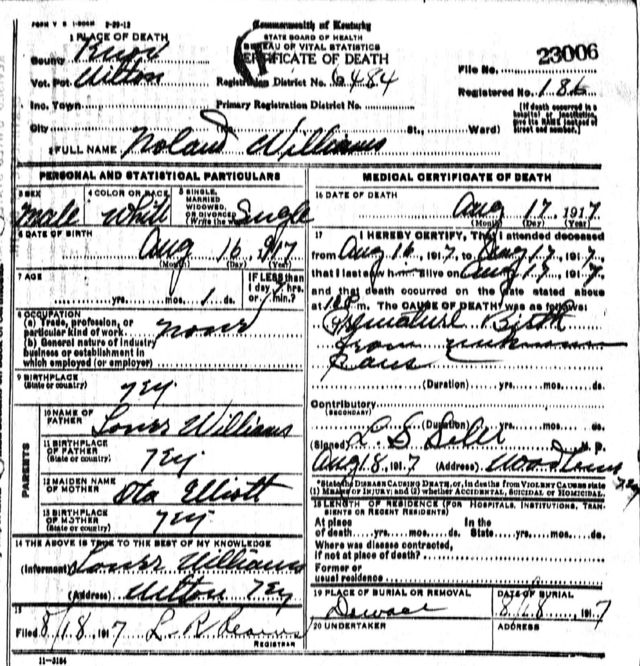 FORM V S 1-500M 2-29-12
Commonwealth of Kentucky
STATE BOARD OF HEALTH
BUREAU OF VITAL STATISTICS
CERTIFICATE OF DEATH
1 PLACE OF DEATH
County Knox
Vot. Pct. Wilton
Inc. Town
City
Registration District No. 6484
Primary Registration District No.
(No. St., Ward)
23006
File No.
Registered No. 186
(If death occurred in a hospital or institution, give its NAME instead of street and number.)
2 FULL NAME Noland Williams
PERSONAL AND STATISTICAL PARTICULARS
3 SEX
Male
4 COLOR OR RACE
White
5 SINGLE, MARRIED WIDOWED, OR DIVORCED (Write the word)
Single
6 DATE OF BIRTH
Aug 16, 1917
(Month) (Day) (Year)
7 AGE
yrs. mos. 1 ds.
IF LESS than 1 day, hrs. or min.?
8 OCCUPATION
(a) Trade, profession, or particular kind of work none
(b) General nature of industry business or establishment in which employed (or employer)
9 BIRTHPLACE
(State or country)
Ky
PARENTS
10 NAME OF FATHER
Williams
11 BIRTHPLACE OF FATHER
(State or country)
Ky
12 MAIDEN NAME OF MOTHER
Ota Elliott
13 BIRTHPLACE OF MOTHER
(State or country)
Ky
14 THE ABOVE IS TRUE TO THE BEST OF MY KNOWLEDGE
(Informant) Williams
(Address) Wilton Ky
15
Filed 8/18, 1917 L. R.
REGISTRAR
11-3184
MEDICAL CERTIFICATE OF DEATH
16 DATE OF DEATH
Aug 17, 1917
(Month) (Day) (Year)
17 I HEREBY CERTIFY, That I attended deceased
from Aug 16, 1917, to Aug 17, 1917,
that I last saw h alive on Aug 17, 1917,
and that death occurred on the date stated above
at m. The CAUSE OF DEATH was as follows:
Premature Birth
from unknown
Caus
(Duration) yrs. mos. ds.
Contributory
(SECONDARY)
(Duration) yrs. mos. ds.
(Signed) L. S. M. D.
Aug 18, 1917 (Address) Ky
*State the DISEASE CAUSING DEATH, or, in deaths from VIOLENT CAUSES state (1) MEANS OF INJURY; and (2) whether ACCIDENTAL, SUICIDAL or HOMICIDAL.
18 LENGTH OF RESIDENCE (FOR HOSPITALS, INSTITUTIONS, TRANSIENTS OR RECENT RESIDENTS)
At place of death yrs. mos. ds. In the State yrs. mos. ds.
Where was disease contracted, if not at place of death?
Former or usual residence
19 PLACE OF BURIAL OR REMOVAL
DATE OF BURIAL
8/18, 1917
20 UNDERTAKER
ADDRESS